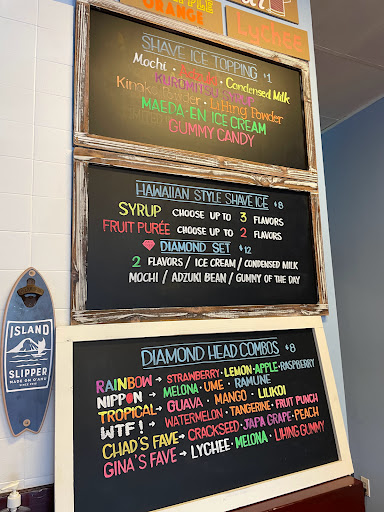 APPLE
ORANGE
Lychee
SHAVE ICE TOPPING $1
Mochi · Adzuki · Condensed Milk
KUROMITSU SYRUP
Kinako Powder · Li Hing Powder
MAEDA-EN ICE CREAM
GUMMY CANDY
HAWAIIAN STYLE SHAVE ICE $8
SYRUP CHOOSE UP TO 3 FLAVORS
FRUIT PURÉE CHOOSE UP TO 2 FLAVORS
DIAMOND SET $12
2 FLAVORS / ICE CREAM / CONDENSED MILK
MOCHI / ADZUKI BEAN / GUMMY OF THE DAY
ISLAND
SLIPPER
MADE ON O'AHU
DIAMOND HEAD COMBOS $8
RAINBOW → STRAWBERRY · LEMON · APPLE · RASPBERRY
NIPPON → MELONA · UME · RAMUNE
TROPICAL → GUAVA · MANGO · LILIKOI
WTF! → WATERMELON · TANGERINE · FRUIT PUNCH
CHAD'S FAVE → CRACKSEED · JAPA GRAPE · PEACH
GINA'S FAVE → LYCHEE · MELONA · LIHING GUMMY